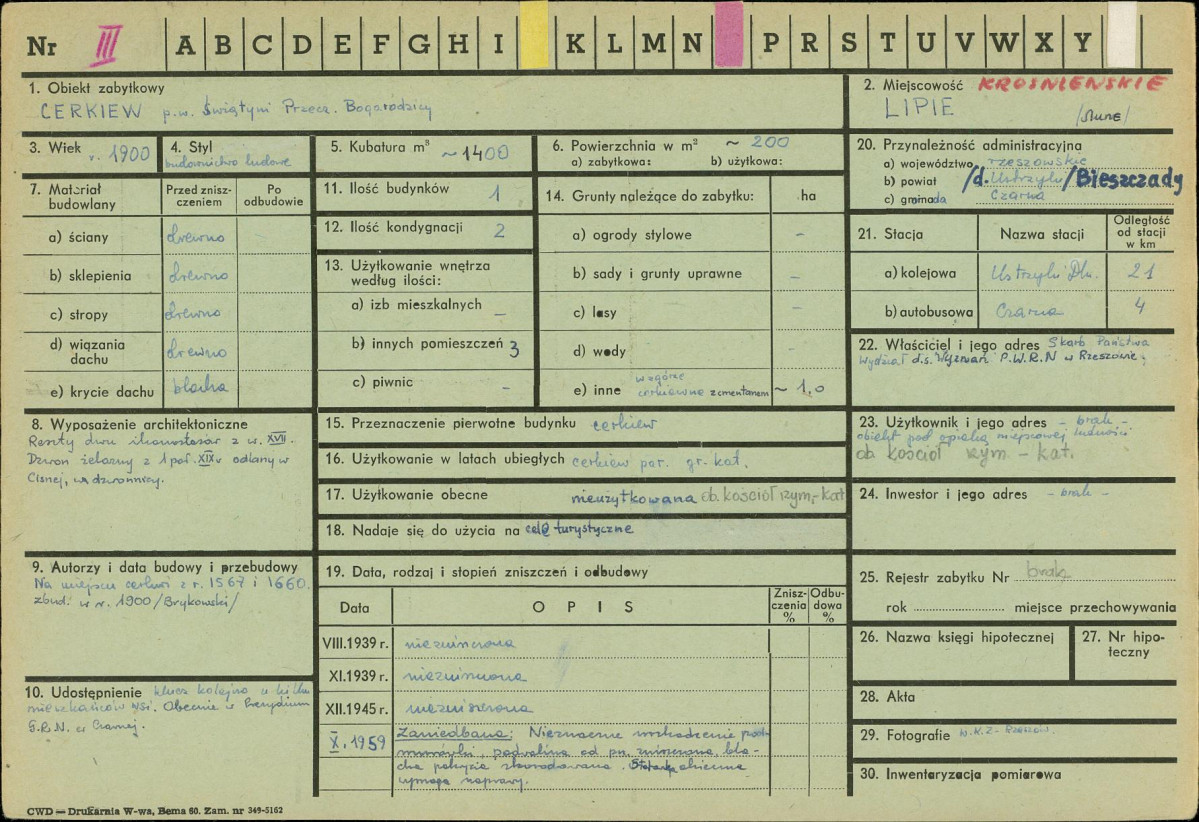 Nr III A B C D E F G H I K L M N P R S T U V W X Y
1. Obiekt zabytkowy
CERKIEW p.w. Świątyni Przecz. Bogarodzicy
2. Miejscowość KROŚNIEŃSKIE
LIPIE
3. Wiek r. 1900
4. Styl
budownictwo ludowe
5. Kubatura m³ ~1400
6. Powierzchnia w m² ~ 200
a) zabytkowa: b) użytkowa:
20. Przynależność administracyjna
a) województwo rzeszowskie
b) powiat /d. Ustrzyki/ Bieszczady
c) gmina Czarna
7. Materiał budowlany
Przed zniszczeniem
Po odbudowie
a) ściany drewno
b) sklepienia drewno
c) stropy drewno
d) wiązania dachu drewno
e) krycie dachu blacha
11. Ilość budynków 1
12. Ilość kondygnacji 2
13. Użytkowanie wnętrza według ilości:
a) izb mieszkalnych –
b) innych pomieszczeń 3
c) piwnic –
14. Grunty należące do zabytku: ha
a) ogrody stylowe –
b) sady i grunty uprawne –
c) lasy –
d) wody –
e) inne wzgórze cerkiewne z cmentarzem ~ 1,0
21. Stacja Nazwa stacji Odległość od stacji w km
a) kolejowa Ustrzyki Dln. 21
b) autobusowa Czarna 4
22. Właściciel i jego adres Skarb Państwa
Wydział d.s. Wyznań P.W.R.N w Rzeszowie.
8. Wyposażenie architektoniczne
Reszty dwu ikonostasów z w. XVII.
Dzwon żelazny z 1 poł. XIX w odlany w
Cisnej, w dzwonnicy.
15. Przeznaczenie pierwotne budynku cerkiew
16. Użytkowanie w latach ubiegłych cerkiew par. gr. kat.
17. Użytkowanie obecne nieużytkowana ob. kościół rzym.-kat
18. Nadaje się do użycia na cele turystyczne
23. Użytkownik i jego adres – brak –
obiekt pod opieką miejscowej ludności
ob. kościół rzym.-kat.
24. Inwestor i jego adres – brak –
9. Autorzy i data budowy i przebudowy
Na miejscu cerkwi z r. 1567 i 1660.
zbud. w r. 1900 /Brykowski/
19. Data, rodzaj i stopień zniszczeń i odbudowy
Data OPIS Zniszczenia % Odbudowa %
VIII.1939 r. niezniszczona
XI.1939 r. niezniszczona
XII.1945 r. niezniszczona
X.1959 Zaniedbana: Nieznaczne uszkodzenie pod-
murówki, podwalina od pn. zniszczona, bla-
cha pokrycia skorodowana. Stolarka okienna
wymaga naprawy.
25. Rejestr zabytku Nr brak
rok miejsce przechowywania
26. Nazwa księgi hipotecznej
27. Nr hipoteczny
10. Udostępnienie klucz kolejno u kilku
mieszkańców wsi. Obecnie w Prezydium
G.R.N. w Czarnej.
28. Akta
29. Fotografie W.K.Z – Rzeszów.
30. Inwentaryzacja pomiarowa
CWD — Drukarnia W-wa, Bema 60. Zam. nr 349-5162